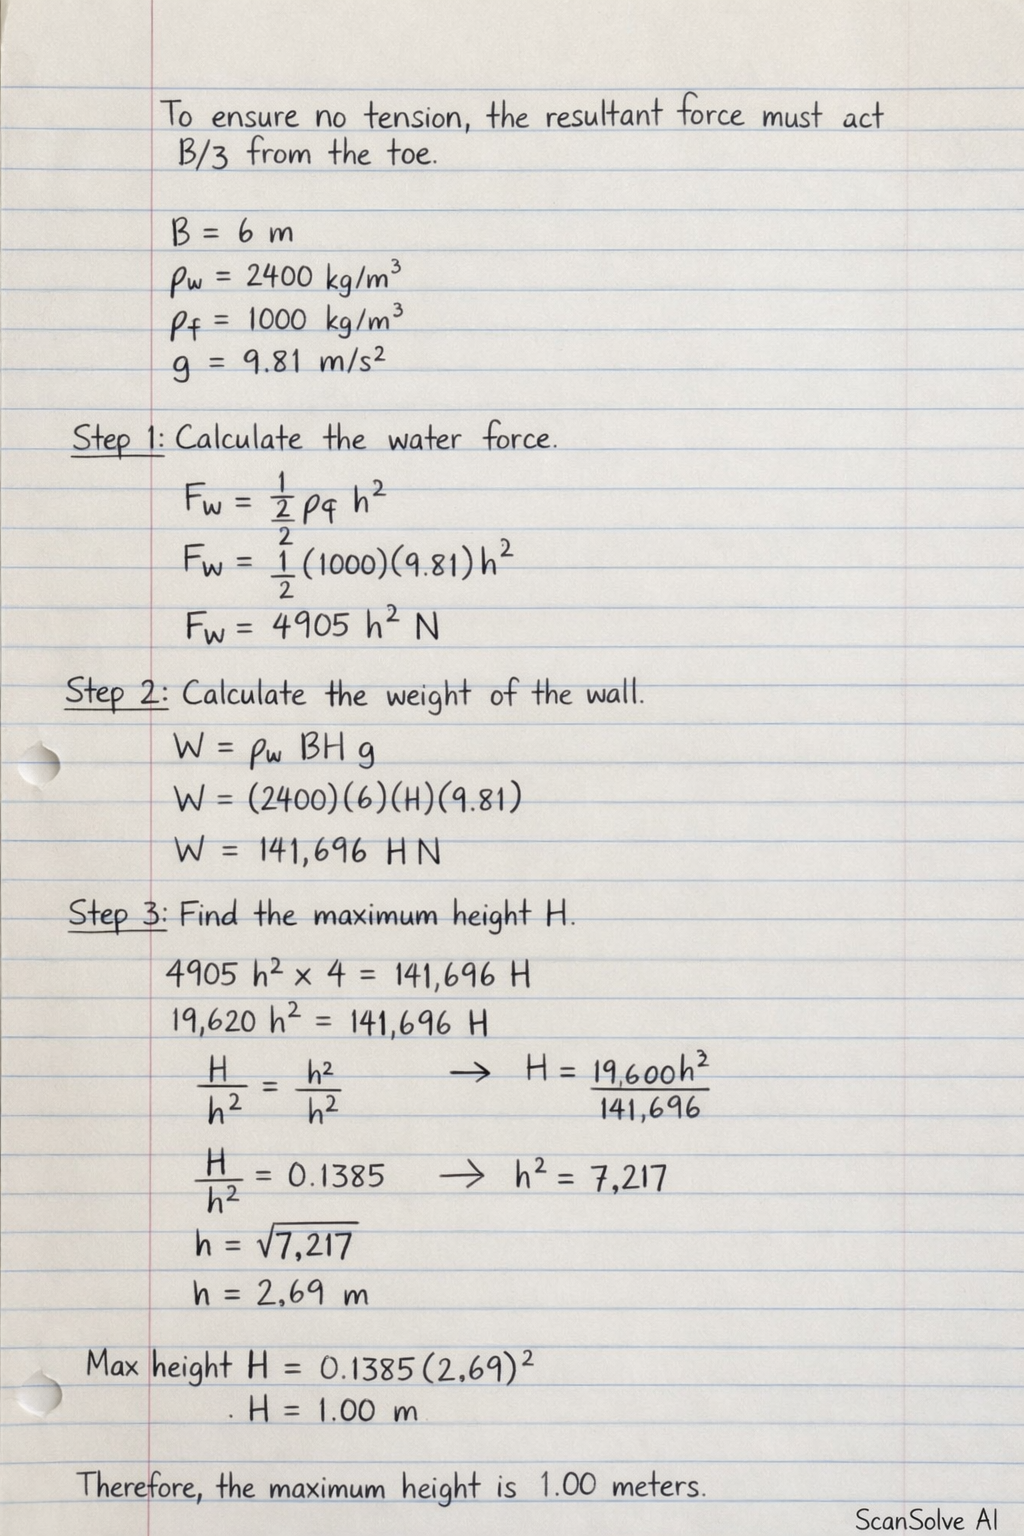 To ensure no tension, the resultant force must act
B/3 from the toe.
B = 6 m
ρw = 2400 kg/m³
ρf = 1000 kg/m³
g = 9.81 m/s²
Step 1: Calculate the water force.
Fw = 1/2/2 ρq h²
Fw = 1/2 (1000)(9.81)h²
Fw = 4905 h² N
Step 2: Calculate the weight of the wall.
W = ρw BH g
W = (2400)(6)(H)(9.81)
W = 141,696 H N
Step 3: Find the maximum height H.
4905 h² x 4 = 141,696 H
19,620 h² = 141,696 H
H/h² = h²/h² → H = 19,600h²/141,696
H/h² = 0.1385 → h² = 7,217
h = √7,217
h = 2,69 m
Max height H = 0.1385(2,69)²
. H = 1.00 m
Therefore, the maximum height is 1.00 meters.
ScanSolve AI